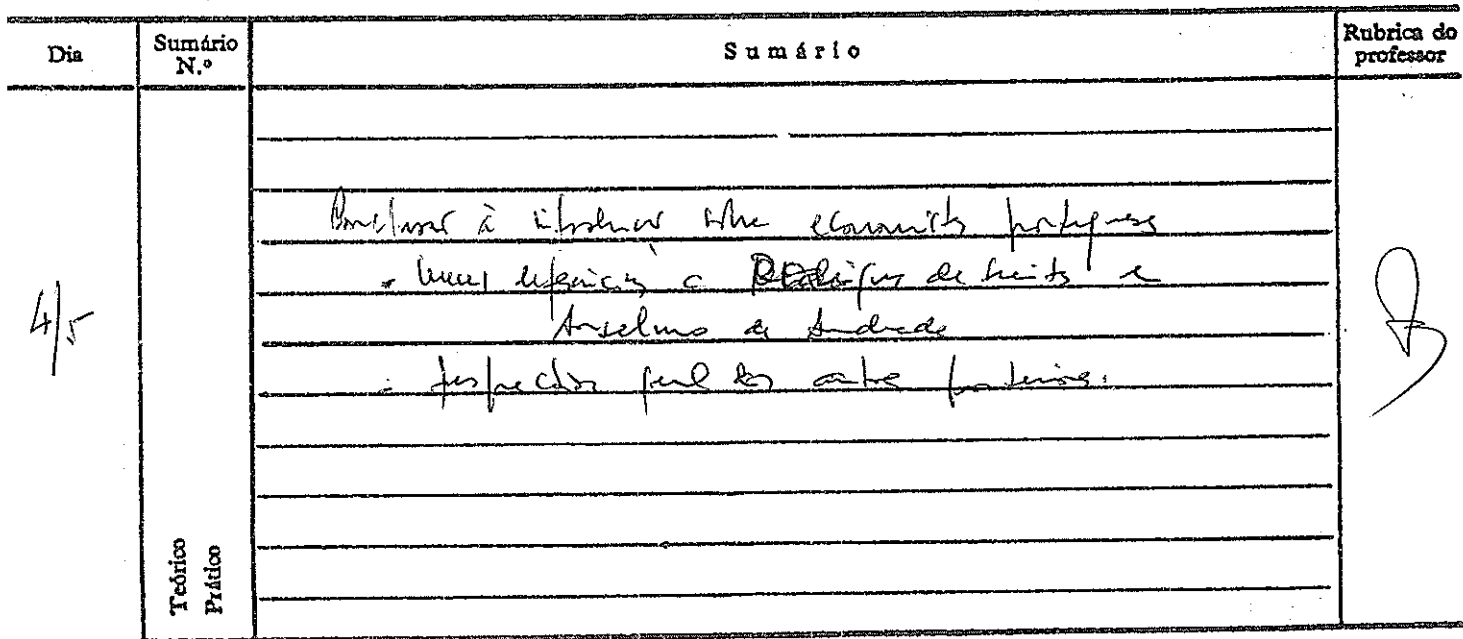 Dia
Sumário N.º
Sumário
Rubrica do professor
4/5
Conclusão à introdução sobre economistas portugueses
- breves referências a Rodrigues de Freitas e
Anselmo de Andrade
- perspectiva geral dos autores posteriores.
Teórico
Prático